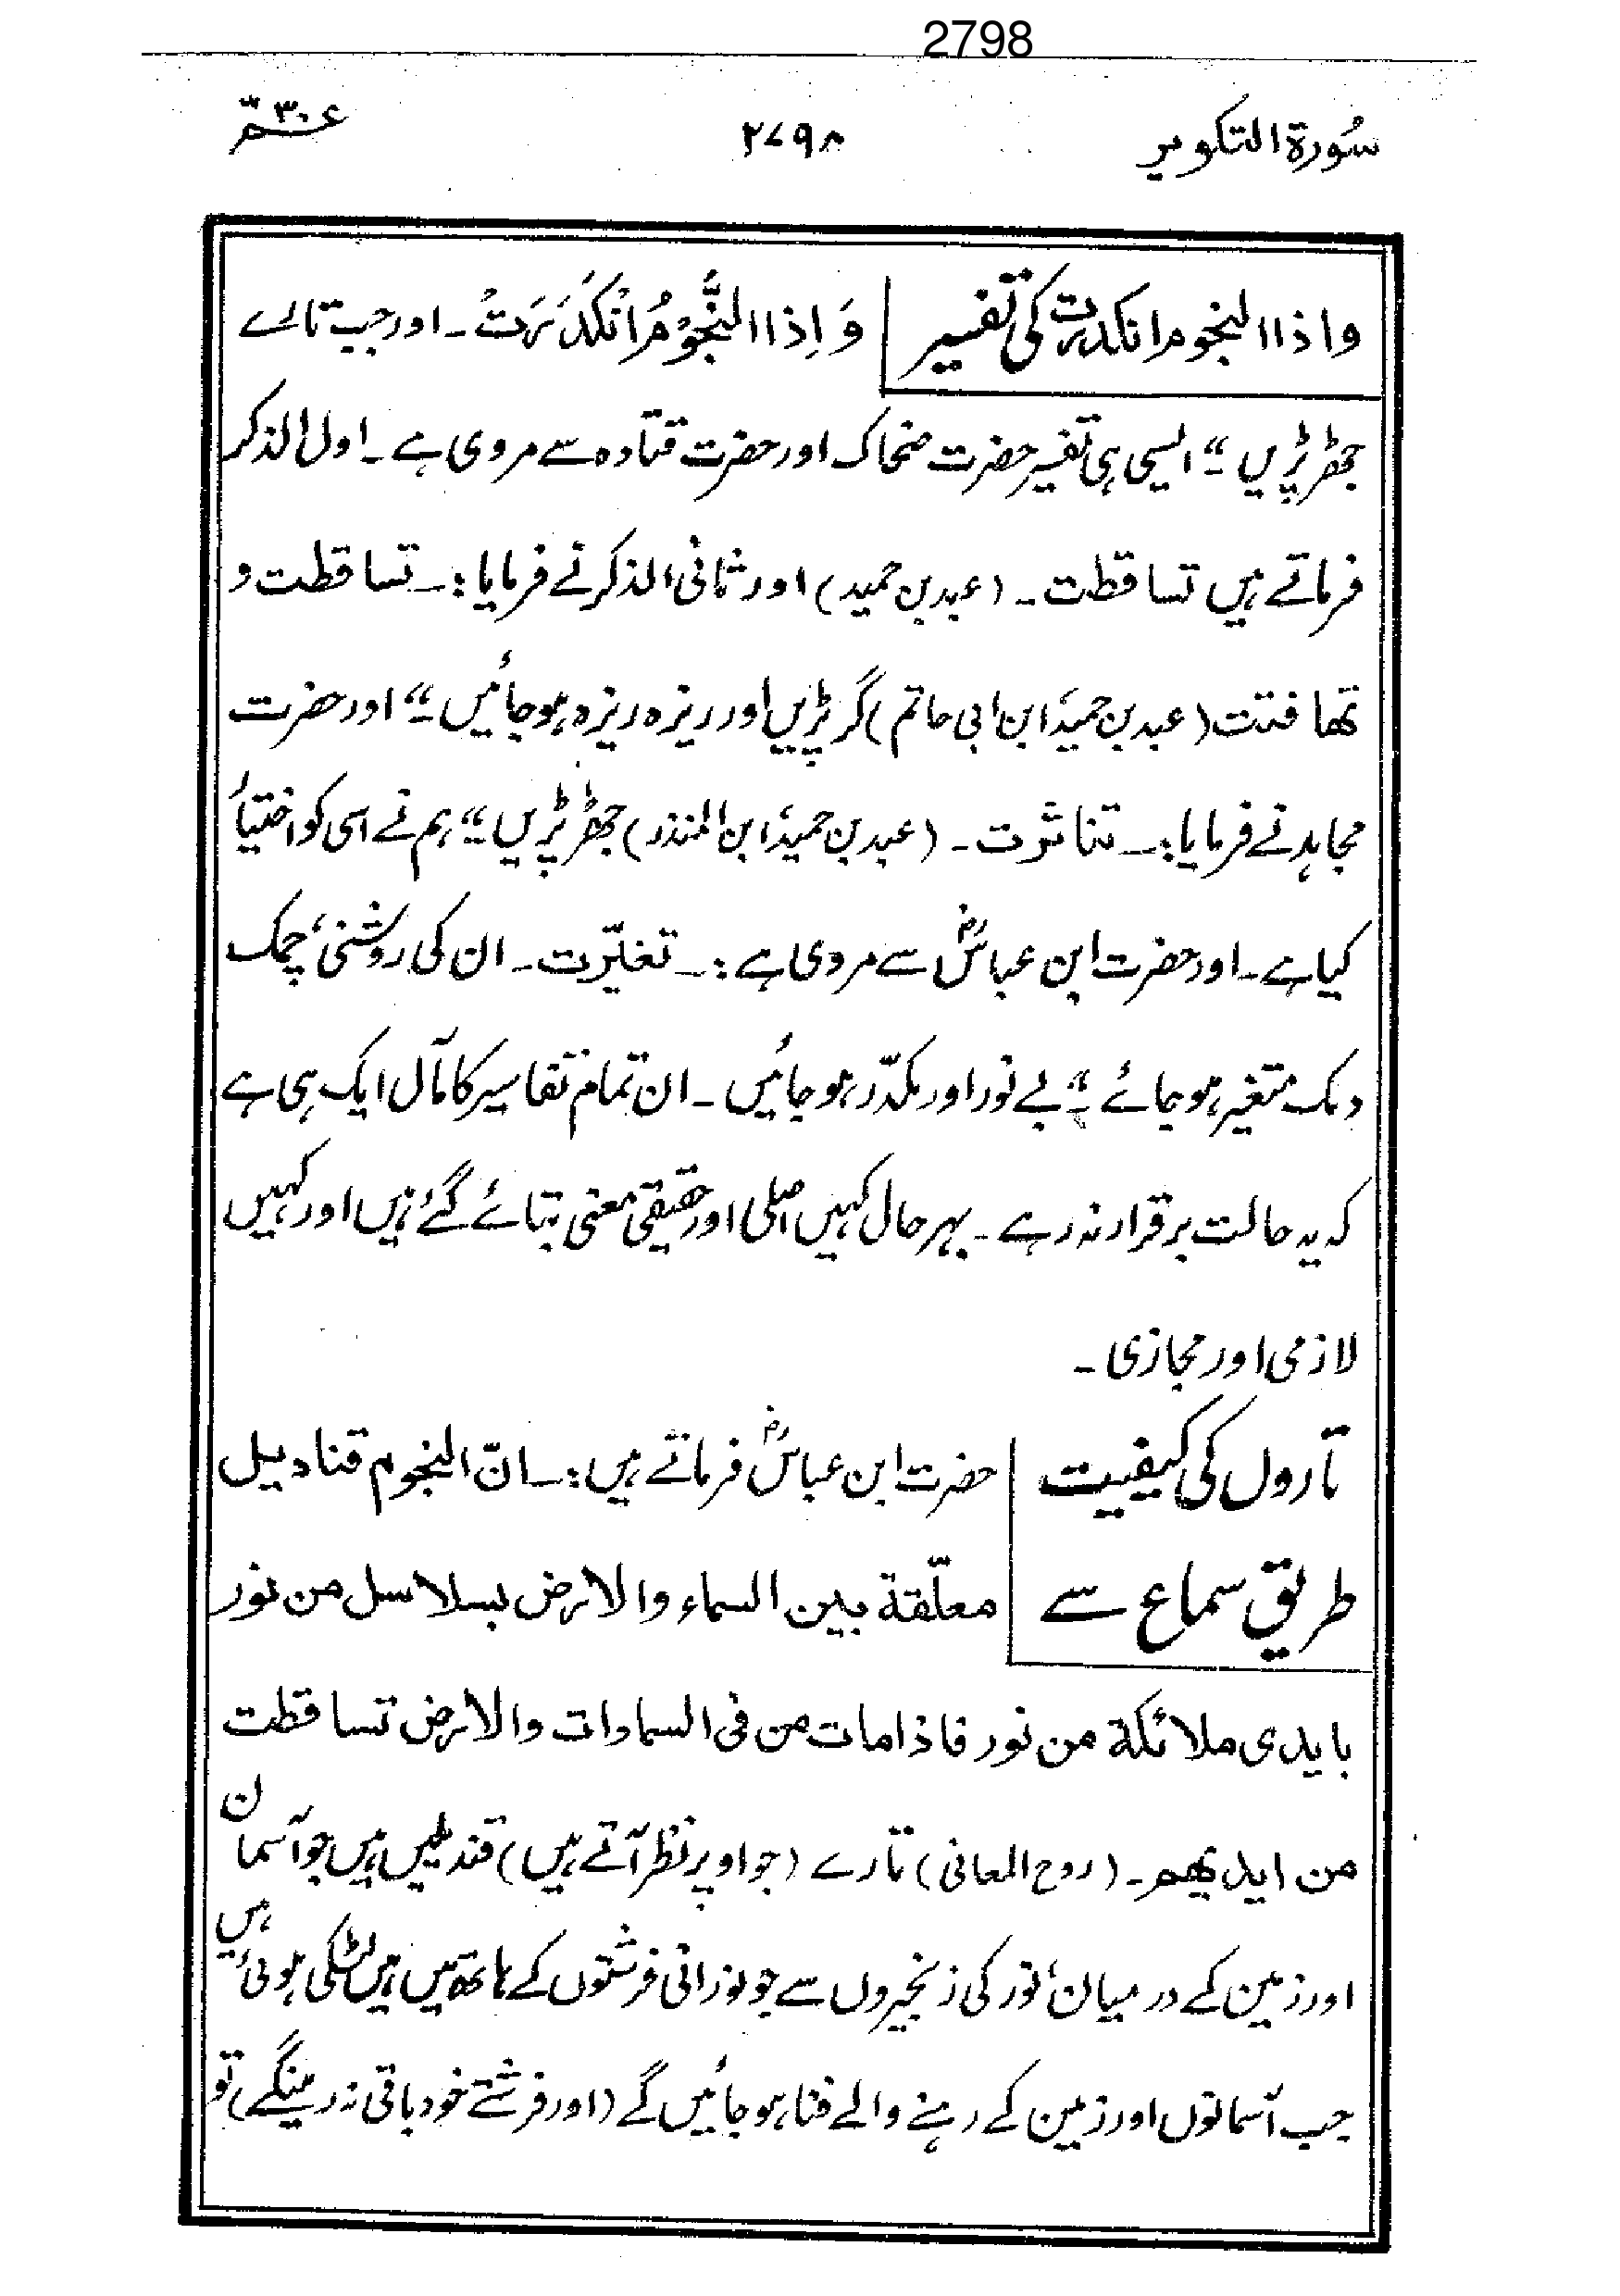 2798
سُورۃ التکویر ۲۷۹۸ عــمّ ۳۰
واذا النجوم انکدرت کی تفسیر وَاِذَا النُّجُوْمُ انْکَدَرَتْ۔ اور جب تارے
جھڑ پڑیں ۔“ ایسی ہی تفسیر حضرت ضحاک اور حضرت قتادہ سے مروی ہے ۔ اول الذکر
فرماتے ہیں تساقطت ۔ (عبد بن حمید) اور ثانی الذکر نے فرمایا :۔ تساقطت و
تھافتت (عبد بن حمید، ابن ابی حاتم) گر پڑیں اور ریزہ ریزہ ہو جائیں ۔“ اور حضرت
مجاہد نے فرمایا :۔ تناثرت ۔ (عبد بن حمید، ابن المنذر) جھڑ پڑیں ۔“ ہم نے اسی کو اختیار
کیا ہے ۔ اور حضرت ابن عباسؓ سے مروی ہے :۔ تغیّرت ۔ ان کی روشنی، چمک
دمک متغیر ہو جائے ۔“ بے نور اور مکدّر ہو جائیں ۔ ان تمام تفاسیر کا مآل ایک ہی ہے
کہ یہ حالت برقرار نہ رہے ۔ بہر حال کہیں اصلی اور حقیقی معنی بتائے گئے ہیں اور کہیں
لازمی اور مجازی ۔
تاروں کی کیفیت حضرت ابن عباسؓ فرماتے ہیں :۔ انّ النجوم قنادیل
طریق سماع سے معلّقة بین السماء والارض بسلاسل من نور
بایدی ملائکة من نور فاذا مات من فی السماوات والارض تساقطت
من ایدیھم ۔ (روح المعانی) تارے (جو اوپر نظر آتے ہیں) قندیلیں ہیں جو آسمان
اور زمین کے درمیان، نور کی زنجیروں سے جو نورانی فرشتوں کے ہاتھ میں ہیں لٹکی ہوئی ہیں
جب آسمانوں اور زمین کے رہنے والے فنا ہو جائیں گے (اور فرشتے خود باقی نہ رہینگے) تو